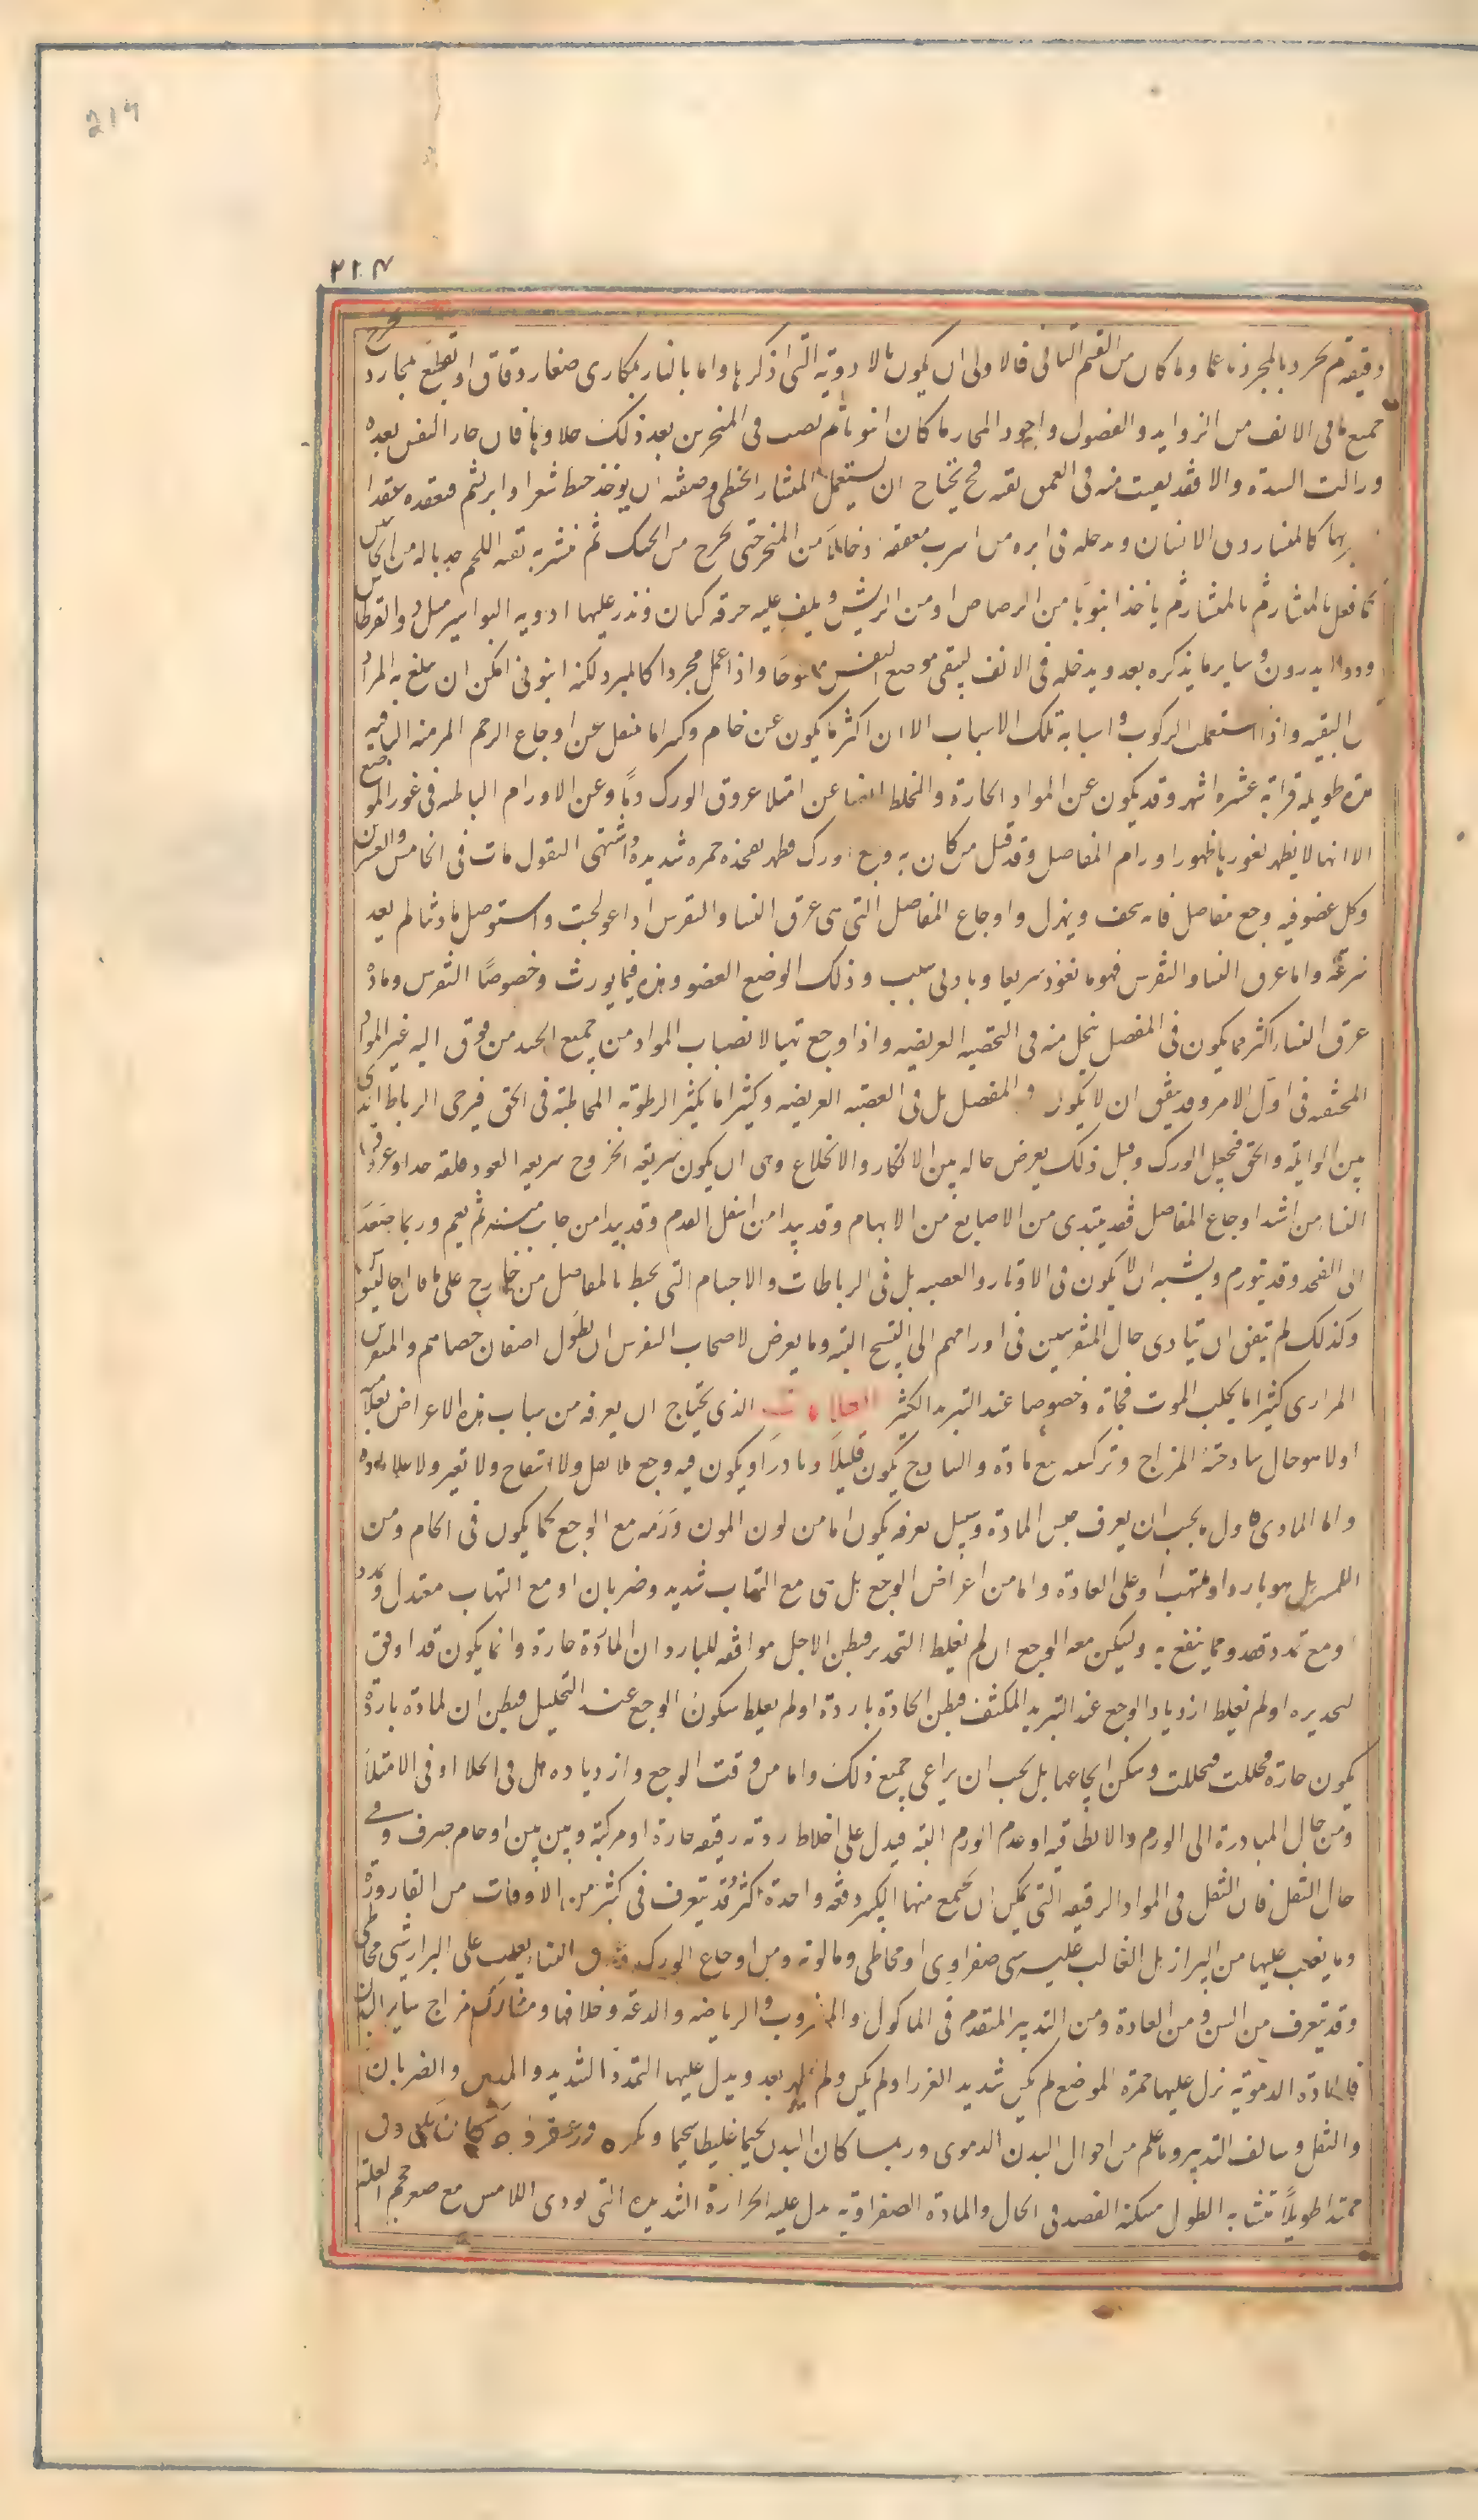 219
٢١٧
دقيقة ثم يجرد بالمجرد ناعما وما كان من القسم الثانى فالاولى ان يكون بالادوية التى اذكرها واما بالنار بمكاوى صغار دقاق او تقطع بمجارد تخرج
جميع ما فى الانف من الزوايد والفضول واجود المجارد ما كان انبوبا ثم يصب فى المنخرين بعد ذلك خلا وما فان جاد النفس بعده
وزالت السدة والا فقد بقيت منه فى العمق بقية فح يحتاج ان يستعمل المنشار الخيطى وصفته ان يؤخذ خيط شعر او ابريشم فيعقده عقدا
كالمنشار دون الاسنان ويدخله فى ابرة من اسرب معقفة ادخالا من المنخر حتى يخرج من الحنك ثم ينشر به بقية اللحم جذبا له من الجانبين
كما يفعل بالمنشار ثم ياخذ انبوبا من الرصاص او من الريش ويلف عليه خرقة كتان ويذر عليها ادوية البواسير مثل دواء القرطاس
ودواء اندرون وساير ما يذكره بعد ويدخله فى الانف ليبقى موضع النفس مفتوحا واذا عمل مجردا كالمبرد لكنه انبوبى امكن ان يبلغ به المراد
التنقية واذا استعملت الركوب واسبابه تلك الاسباب الا ان اكثر ما يكون عن خام وكثيرا ما ينتقل عن اوجاع الرحم المزمنة الباقية
مدة طويلة قرابة عشرة اشهر وقد يكون عن المواد الحارة والمختلطة ايضا عن امتلا عروق الورك دما وعن الاورام الباطنة فى غور الموضع
الا انها لا يظهر لغورها ظهور اورام المفاصل وقد قيل من كان به وجع الورك فظهر بفخذه حمرة شديدة واشتهى البقول مات فى الخامس والعشرين
وكل عضو فيه وجع مفاصل فانه يخف ويهزل واوجاع المفاصل التى هى عرق النسا والنقرس اذا عولجت واستوصل مادتها لم يعد
سرعة واما عرق النسا والنقرس فهو مما يعود سريعا وبادنى سبب وذلك لوضع العضو وهذه فيما يورث وخصوصا النقرس ومادة
عرق النسا اكثر مما يكون فى المفصل ينحل منه فى العصبة العريضة واذا اوجع تهيا لانصباب المواد من جميع الجسد من فوق اليه غير المواد
المحتقنة فى اول الامر وقد يتفق ان لا يكون فى المفصل بل فى العصبة العريضة وكثيرا ما يكثر الرطوبة المخاطية فى الحق فيرخى الرباط الذى
بين الزايدة والحق فينخلع الورك وقبل ذلك يعرض حالة بين الارتكاز والانخلاع وهى ان يكون سريعة الخروج سريعة العود قلقة جدا وعرق
النسا من اشد اوجاع المفاصل فقد يبتدى من الاصابع من الابهام وقد يبدا من اسفل القدم وقد يبدا من جانب منه ثم يعم وربما صعد
الى الفخذ وقد يتورم ويشبه ان لا يكون فى الاوتار والعصبة بل فى الرباطات والاجسام التى تحيط بالمفاصل من خارج على ما قال جالينوس
وكذلك لم يتفق ان يتادى حال المنقرسين فى اورامهم الى التشنج البتة وما يعرض لاصحاب النقرس ان يطول اصفان خصاهم والنقرس
المرارى كثيرا ما يجلب الموت فجأة وخصوصا عند التبريد الكثير العلامات الذى يحتاج ان يعرفه من اسباب هذه الاعراض بعلامة
اولا هو حال ساذجية المزاج وتركيبه مع مادة والساذج يكون قليلا ونادرا ويكون فيه وجع بلا ثقل ولا انتفاخ ولا تغير ولا علامة مادة
واما المادى فاول ما يجب ان يعرف جنس المادة وسبيل تعرفه يكون اما من لون الورم ورمه مع الوجع كما يكون فى الخام ومن
اللمس هل هو بارد او ملتهب او على العادة واما من اعراض الوجع بل هى مع التهاب شديد وضربان او مع التهاب معتدل وتمدد
او مع تمدد فقد ومما ينتفع به وليكن معه الوجع ان لم يغلط التخدير فيظن لاجل موافقة للبارد ان المادة حارة وانما يكون قد اوفق
لتخديره او لم يغلط ازدياد الوجع عند التبريد المكثف فيظن الحادة باردة او لم يغلط سكون الوجع عند التحليل فيظن ان المادة باردة
يكون حارة فحللت فتحللت وسكن ايجاعها بل يجب ان يراعى جميع ذلك واما من وقت الوجع وازدياده هل فى الخلا او فى الامتلا
ومن حال المبادرة الى الورم والابطا فيه او عدم الورم البتة فيدل على اخلاط ردية رقيقة حارة او مركبة وبين بين او خام صرف وفى
حال الثقل فان الثقل فى المواد الرقيقة التى يمكن ان يجتمع منها الكثير دفعة واحدة اكثر وقد يتعرف فى كثير من الاوقات من القارورة
وما يغلب عليها من البراز بل الغالب عليه شى صفراوى او مخاطى وما لونه ومن اوجاع الورك وعرق النسا يغلب على البراز شى مخاطى
وقد يتعرف من السن ومن العادة ومن التدبير المتقدم فى الماكول والمشروب والرياضة والدعة وخلافها ومشاركة مزاج ساير البدن
فالمادة الدموية يدل عليها حمرة الموضع لم يكن شديد الغور او لم يكن ولم يظهر بعد ويدل عليها التمدد الشديد والمدس والضربان
والثقل وسالف التدبير وما علم من احوال البدن الدموى وربما كان البدن لحيما غليظا شحيما
ممتدا طويلا متشابه الطول مسكنه الفصد فى الحال والمادة الصفراوية يدل عليه الحرارة الشديدة التى تؤذى اللامس مع صغر حجم العلة